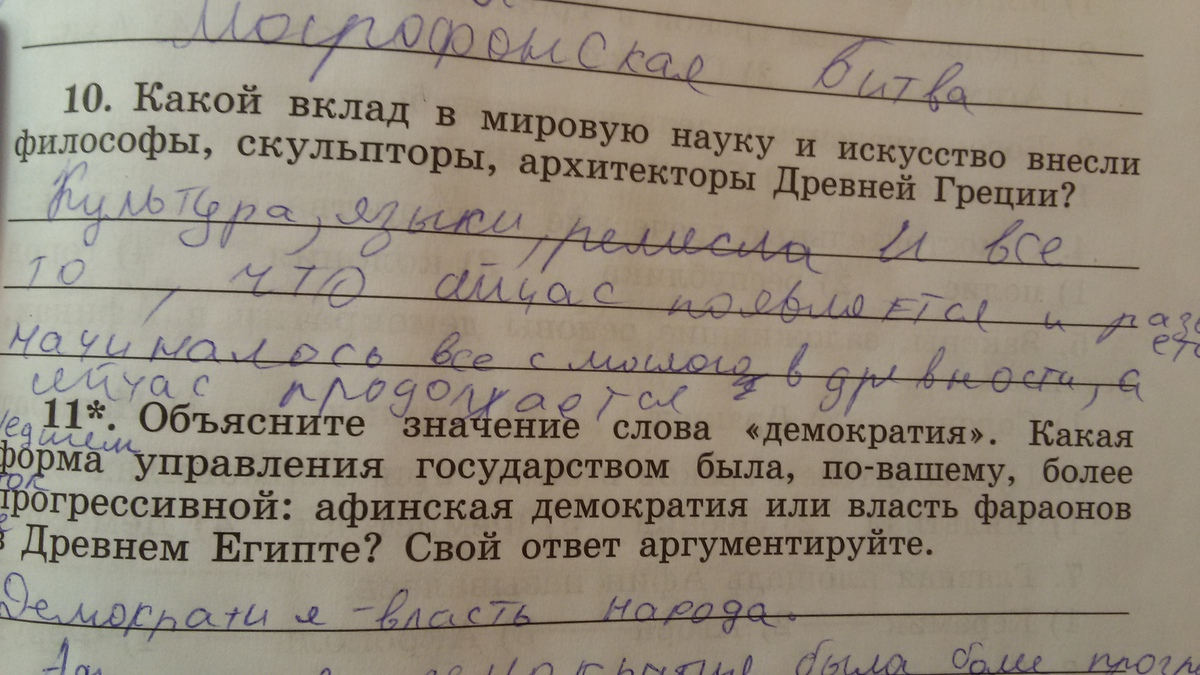 Мосрофонская битва
10. Какой вклад в мировую науку и искусство внесли
философы, скульпторы, архитекторы Древней Греции?
Культура, языки, ремесла и все
то, что сйчас появляется и разв
ето
начиналось все с молого в древности, а
сейчас продолжается
11*. Объясните значение слова «демократия». Какая
форма управления государством была, по-вашему, более
прогрессивной: афинская демократия или власть фараонов
в Древнем Египте? Свой ответ аргументируйте.
Демократия - власть народа.
демократия была боле прогр